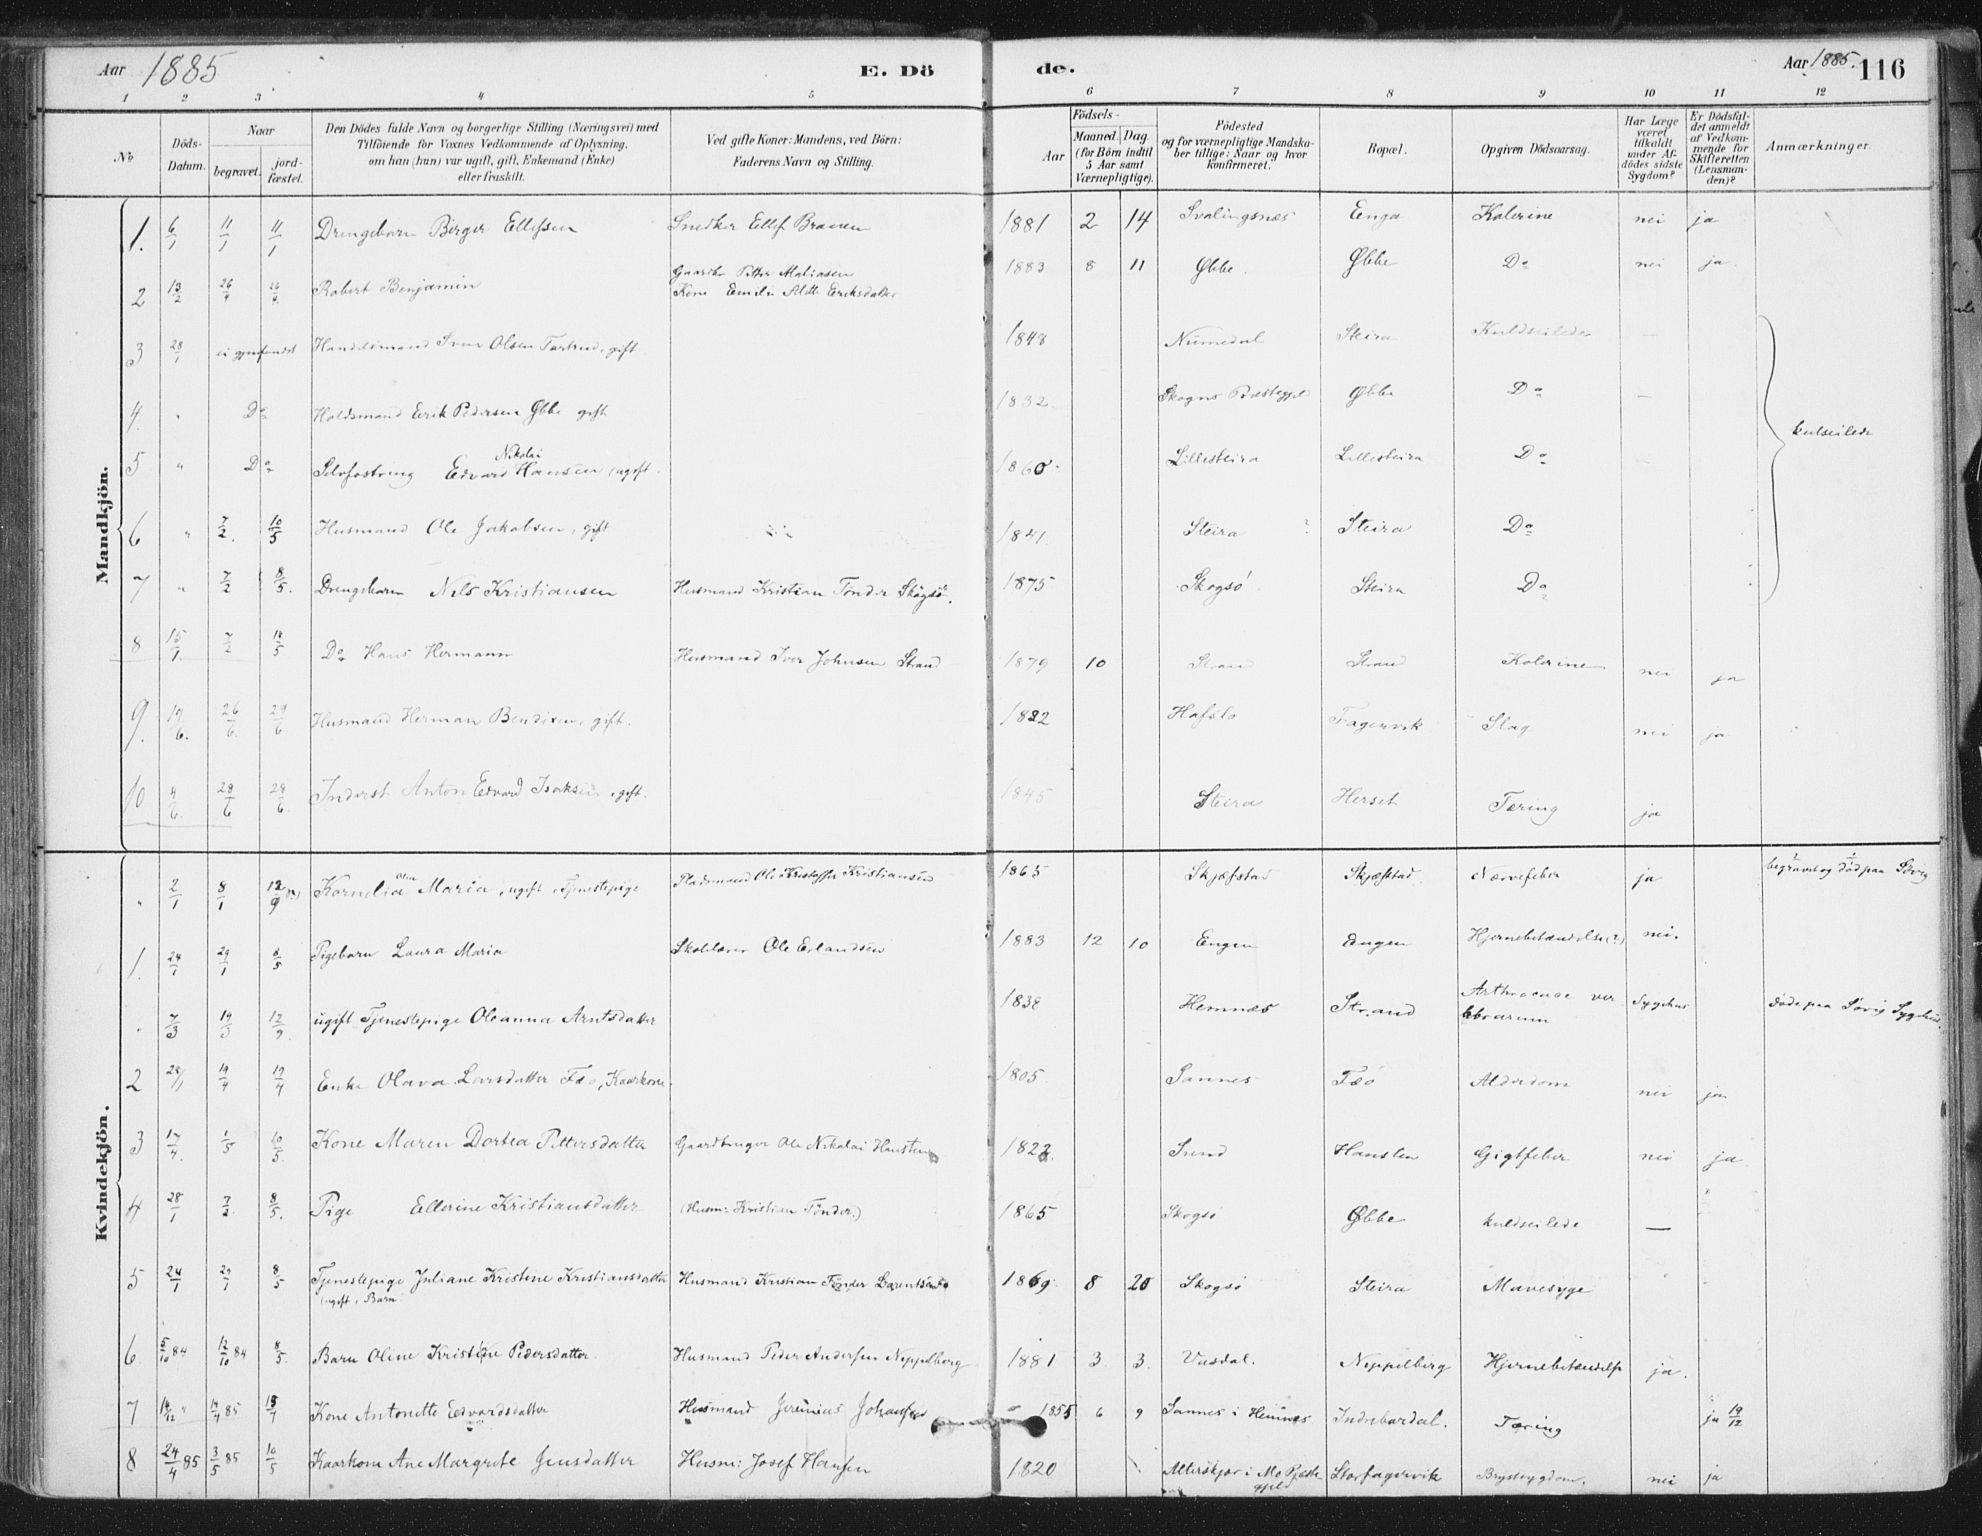 Aar 1885 E. Dö de. Aar 1885. 116
1 2 3 4 5 6 7 8 9 10 11 12
No
Döds-Datum.
Naar
begravet.
jord-fæstet.
Den Dödes fulde Navn og borgerlige Stilling (Næringsvei) med
Tilföiende for Voxnes Vedkommende af Oplysning,
om han (hun) var ugift, gift, Enkemand (Enke)
eller fraskilt.
Ved gifte Koner: Mandens, ved Börn:
Faderens Navn og Stilling.
Födsels-
Aar
Maaned. Dag.
(for Börn indtil
5 Aar samt
Værnepligtige).
Födested
og for værnepligtige Mandska-
ber tillige: Naar og hvor
konfirmeret.
Bopæl.
Opgiven Dödsaarsag.
Har Læge
været
tilkaldt
under Af-
dödes sidste
Sygdom?
Er Dödsfal-
det anmeldt
af Vedkom-
mende for
Skifteretten
(Lensman-
den)?
Anmærkninger.
Mandkjön.
1. 6/1 11/1 11/1 Drengebarn Birger Ellefsen Snedker Ellef 1881 2 14 Svalingsnæs Enga Kolerine nei ja
2 13/2 26/4 26/4 Robert Benjamin Gaardbr Petter Matiasen
Kone Emilie Eriksdatter 1883 8 11 Øbbe. Øbbe Do nei ja.
3 28/1 ei gjenfundet Handelsmand Iver Olsen gift 1848 Numedal Steira Kuldseilede —
4. " Do Holdsmand Eerik Pedersen Øbbe gift 1832. Skogns Præstegjeld Øbbe Do —
kulseilede
5 " Do Selvfostring Edvard Nikolai Hansen, ugift. 1860. Lillesteira Lillesteira Do —
6 " 7/2. 10/5 Husmand Ole Jakobsen, gift 1841. Steira ? Steira Do
7 " 7/2 8/5. Drengebarn Nils Kristiansen Husmand Kristian Tönder Skogsö. 1875 Skogsö Steira Do
8 15/1. 7/2 10/5 Do Hans Hermann Husmand Iver Johnsen Strand 1879 10 Strand Strand Kolerine nei ja
9. 19/6. 26/6. 29/6 Husmand Herman Bendixen, gift. 1822 Hafslo Fagervik Slag nei ja
10 4/6. 28/6 28/6. Inderst Anton Edvard Isaksen, gift. 1845 Steira Herset Tæring ja
Kvindekjön.
" 2/1 8/1 12/9 Kornelia Maria, ugift, Tjenestepige Pladsmand Ole Kristoffer Kristiansen 1865 Skjæfstad Skjæfstad. Nervefeber ja begravet og död paa Sövig
1. 24/1 29/1 8/5 Pigebarn Laura Maria Skolelærer Ole Erlandsen 1883 12 10 Engen Engen Hjernebetændelse (?) nei.
" 7/3 19/3 12/9. ugift Tjenestepige Oleanna Arntsdatter 1838 Hemnæs Strand Arthrocace ver
tebrarum Sygehus döde paa Sövig Sygehus.
2 28/1 19/4 19/4 Enke Olava Larsdatter Fæö, Kaarkone. 1805 Sannes Fæö Alderdom nei ja
3 17/4. 1/5 10/5. Kone Maren Dortea Pettersdatter Gaardbruger Ole Nikolai Hansten 1822. Sund Hansten Gigtfeber nei ja
4 28/1 7/2. 8/5. Pige Ellerine Kristiansdatter (Husm: Kristian Tönder.) 1865 Skogsö Øbbe kuldseilede —
5 24/1 29/1 8/5 Tjenestepige Juliane Kristine Kristiansdatter
(ugift, Barn Husmand Kristian Tönder 1869. 8 20 Skogsö Steira Mavesyge
6. 5/10 84 12/10 84 8/5. Barn Oline Kristine Pedersdatter. Husmand Peder Andersen Neppelberg 1881 3. 3. Vasdal. Neppelberg Hjernebetændelse ja.
7 14/12 " 14/4 85 Kone Antonette Edvardsdatter Husmand Jeremias Johansen 1855 6 9 Sannes i Hemnes Indrebardal. Tæring ja 19/12
8 24/4 85 3/5 85 10/5 Kaarkone Ane Margrete Jensdatter Husm: Josef Hansen 1820 Alterskjær i Mo Præste
gjeld Storfagervik Brystsygdom. nei ja